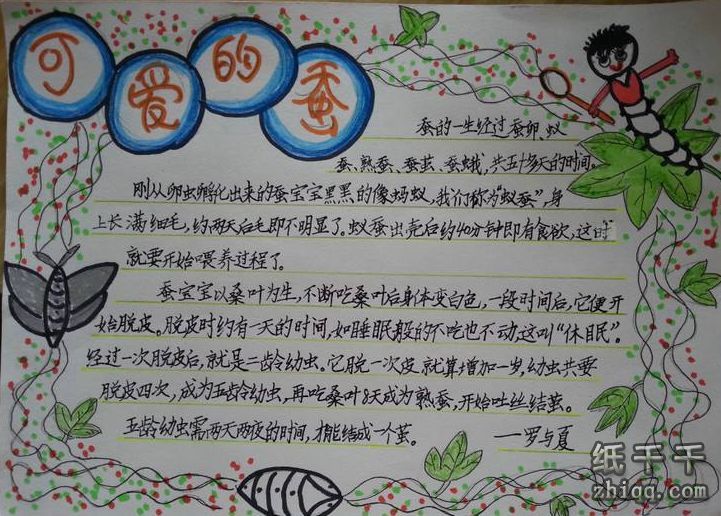 可爱的蚕
蚕的一生经过蚕卵、蚁
蚕、熟蚕、蚕茧、蚕蛾,共五十多天的时间,
刚从卵虫孵化出来的蚕宝宝黑黑的像蚂蚁,我们称为“蚁蚕”,身
上长满细毛,约两天后毛即不明显了。蚁蚕出壳后约40分钟即有食欲,这时
就要开始喂养过程了。
蚕宝宝以桑叶为生,不断吃桑叶后身体变白色,一段时间后,它便开
始脱皮。脱皮时约有一天的时间,如睡眠般的不吃也不动,这叫“休眠”。
经过一次脱皮后,就是二龄幼虫。它脱一次皮就算增加一岁,幼虫共要
脱皮四次,成为五龄幼虫,再吃桑叶8天成为熟蚕,开始吐丝结茧。
五龄幼虫需两天两夜的时间,才能结成一个茧。
——罗与夏
纸千千
zhiqq.com